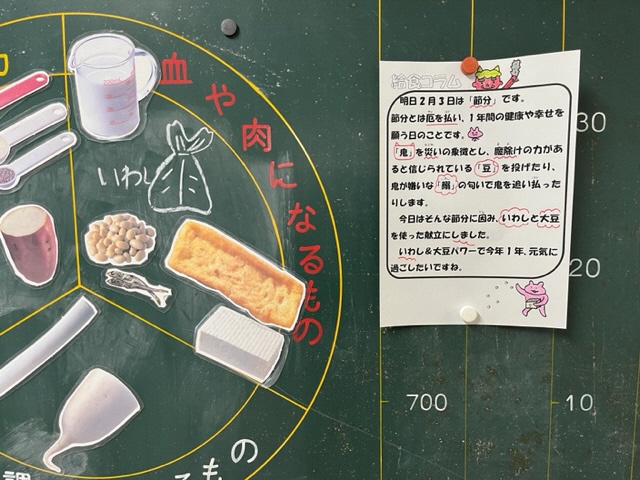 血や肉になるもの
いわし
もの
調
給食コラム
明日2月3日は「節分」です。
節分とは厄を払い、1年間の健康や幸せを
願う日のことです。
「鬼」を災いの象徴とし、魔除けの力があ
ると信じられている「豆」を投げたり、
鬼が嫌いな「鰯」の匂いで鬼を追い払った
りします。
今日はそんな節分に因み、いわしと大豆
を使った献立にしました。
いわし&大豆パワーで今年1年、元気に
過ごしたいですね。
30
20
700
10